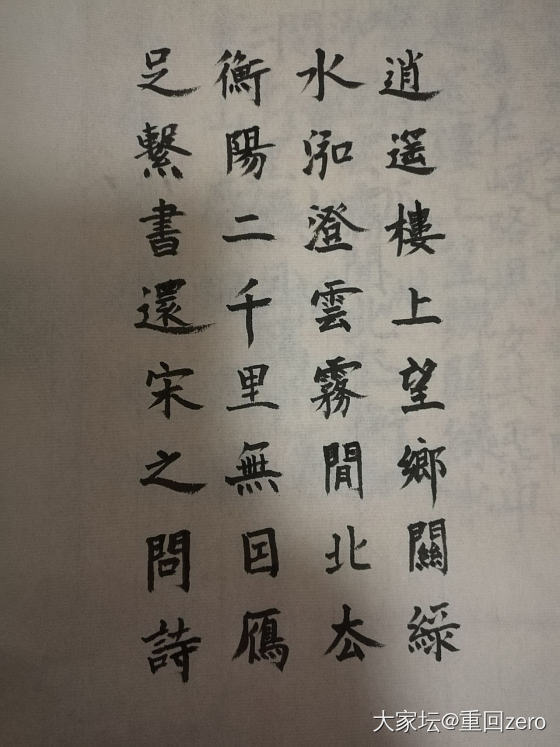 逍遥樓上望鄉關綠
水泓澄雲霧閒北厺
衡陽二千里無囙鴈
足繫書還宋之問詩
大家坛@重回zero